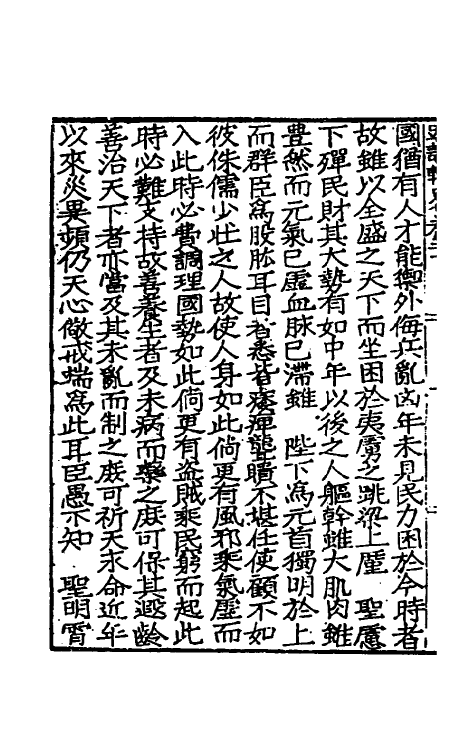 國猶有人才能禦外侮兵亂凶年未見民力困於今時者
故雖以全盛之天下而坐困於夷虜之跳梁上廑　聖慮
下殫民財其大勢有如中年以後之人軀幹雖大肌肉雖
豊然而元氣已虛血脉已滯雖　陛下爲元首獨明於上
而群臣爲股肱耳目者悉皆痿痺聾聵不堪任使顧不如
彼侏儒少壯之人故使人身如此倘更有風邪乘氣虛而
入此時必費調理國勢如此倘更有盗賊乘民窮而起此
時必難支持故善養生者及未病而藥之庶可保其遐齡
善治天下者亦當及其未亂而制之庶可祈天求命近年
以來災異頻仍天心儆戒端爲此耳臣愚不知　聖明霄